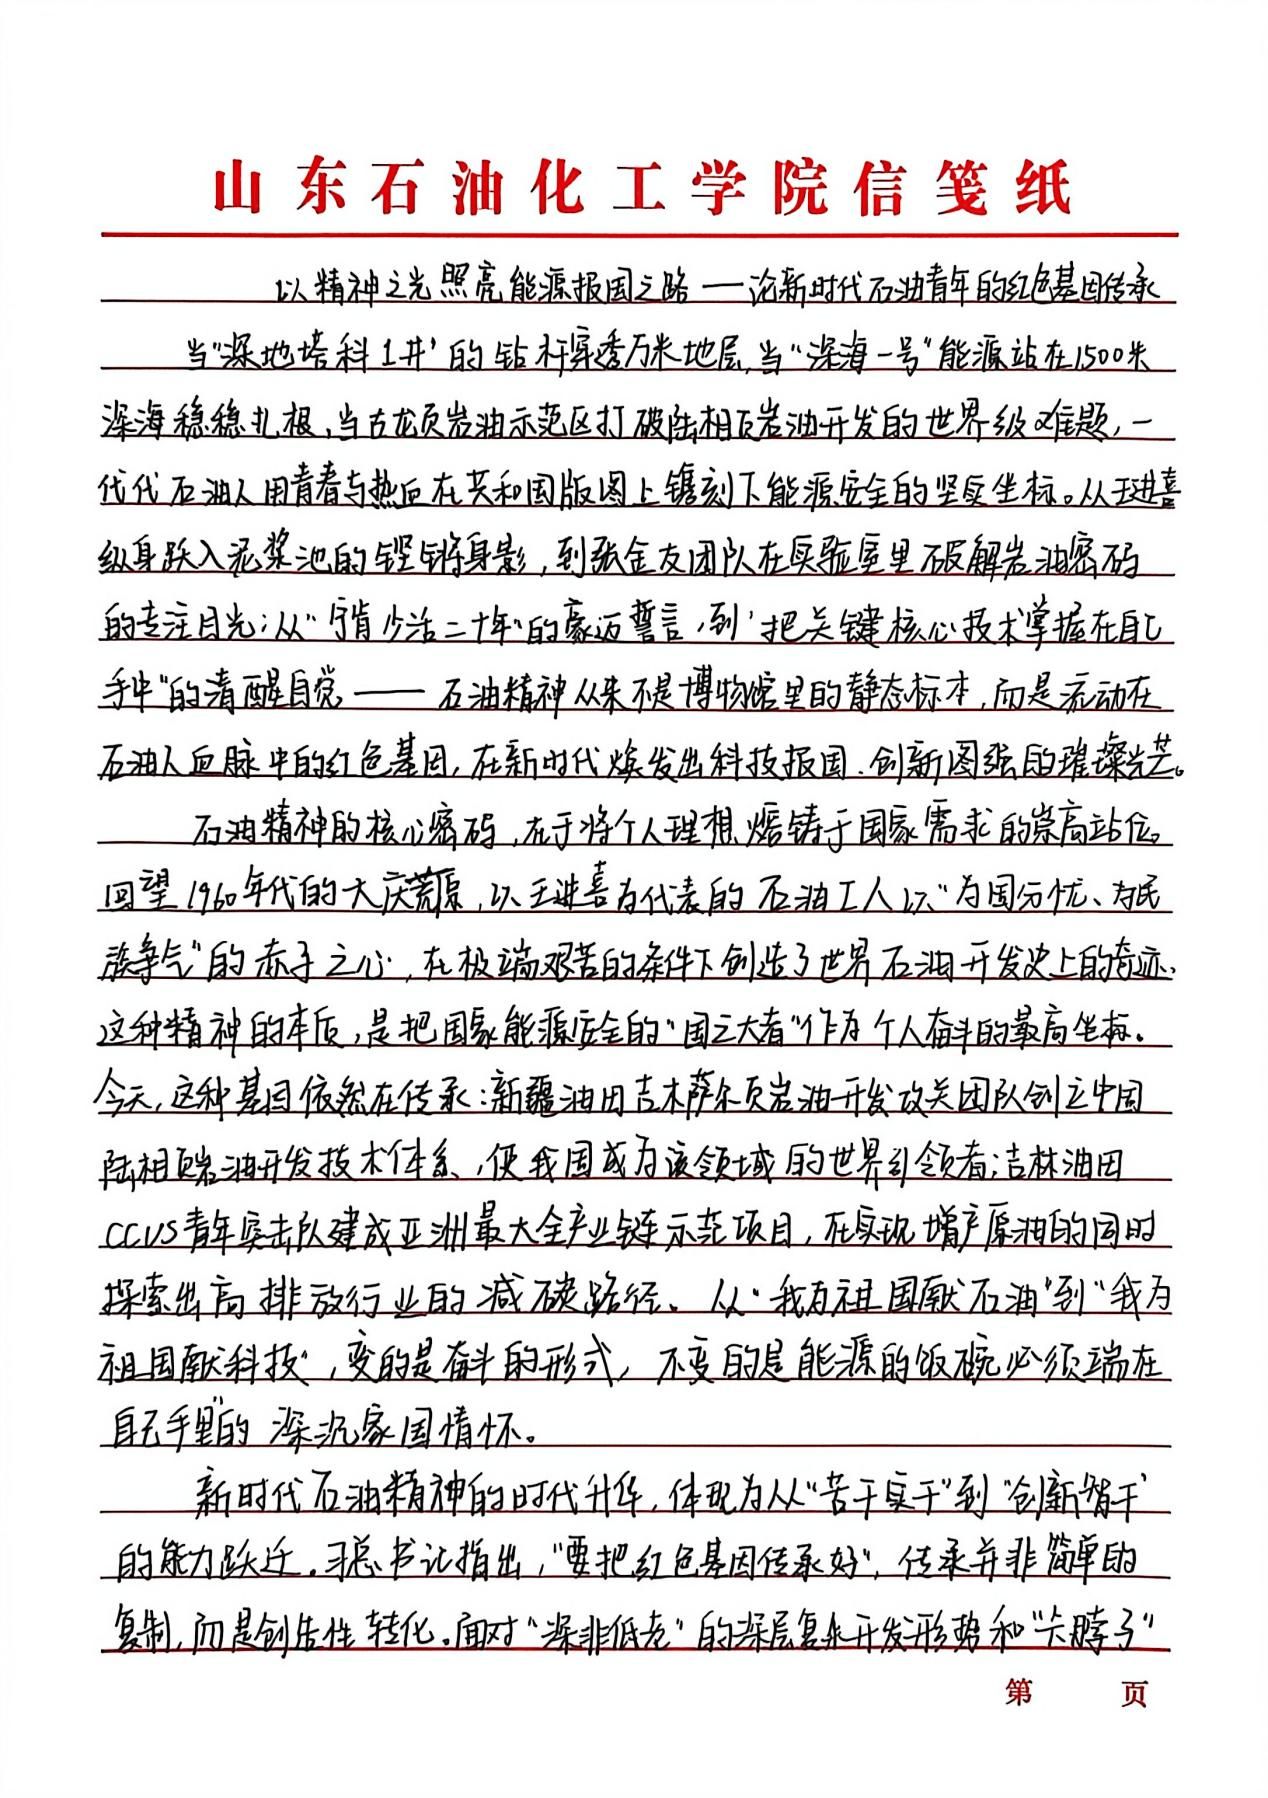 山东石油化工学院信笺纸
以精神之光照亮能源报国之路——论新时代石油青年的红色基因传承
当“深地塔科1井”的钻杆穿透万米地层,当“深海一号”能源站在1500米
深海稳稳扎根,当古龙页岩油示范区打破陆相页岩油开发的世界级难题,一
代代石油人用青春与热血在共和国版图上镌刻下能源安全的坚实坐标。从王进喜
纵身跃入泥浆池的铿锵身影,到张金友团队在实验室里破解岩油密码
的专注目光;从“宁肯少活二十年”的豪迈誓言,到“把关键核心技术掌握在自己
手中”的清醒自觉——石油精神从来不是博物馆里的静态标本,而是流动在
石油人血脉中的红色基因,在新时代焕发出科技报国、创新图强的璀璨光芒。
石油精神的核心密码,在于将个人理想熔铸于国家需求的崇高站位。
回望1960年代的大庆荒原,以王进喜为代表的石油工人以“为国分忧、为民
族争气”的赤子之心,在极端艰苦的条件下创造了世界石油开发史上的奇迹。
这种精神的本质,是把国家能源安全的“国之大者”作为个人奋斗的最高坐标。
今天,这种基因依然在传承:新疆油田吉木萨尔页岩油开发攻关团队创立中国
陆相页岩油开发技术体系,使我国成为该领域的世界引领者;吉林油田
CCUS青年突击队建成亚洲最大全产业链示范项目,在实现增产原油的同时
探索出高排放行业的减碳路径。从“我为祖国献石油”到“我为
祖国献科技”,变的是奋斗的形式,不变的是能源的饭碗必须端在
自己手里”的深沉家国情怀。
新时代石油精神的时代升华,体现为从“苦干实干”到“创新智干”
的能力跃迁。习总书记指出,“要把红色基因传承好”,传承并非简单的
复制,而是创造性转化。面对“深非低老”的深层复杂开发形势和“卡脖子”
第 页